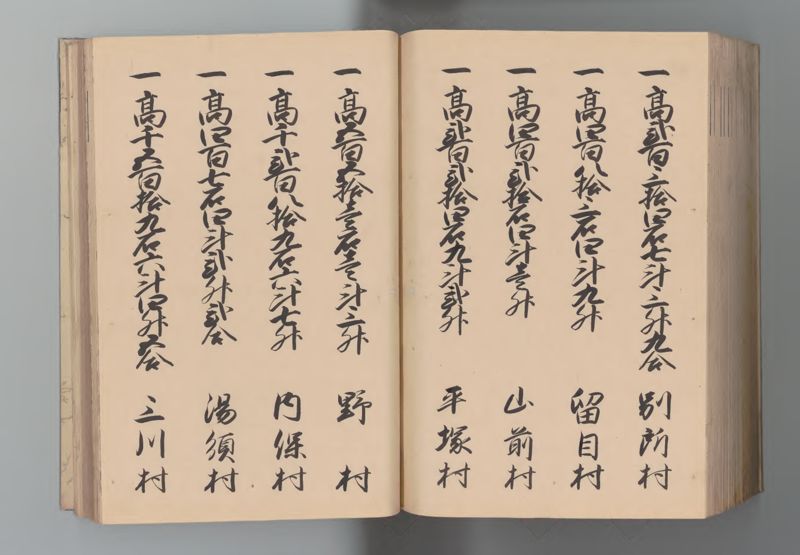 一高弐百三拾四石七斗三升九合 別所村
一高四百八拾三石四斗九升 留目村
一高四百弐拾石四斗壱升 山前村
一高弐百弐拾四石九斗弐升 平塚村
一高五百五拾壱石壱斗三升 野村
一高千弐百八拾九石六斗七升 内保村
一高四百七石四斗弐升弐合 湯須村
一高千五百拾九石六斗四升五合 三川村